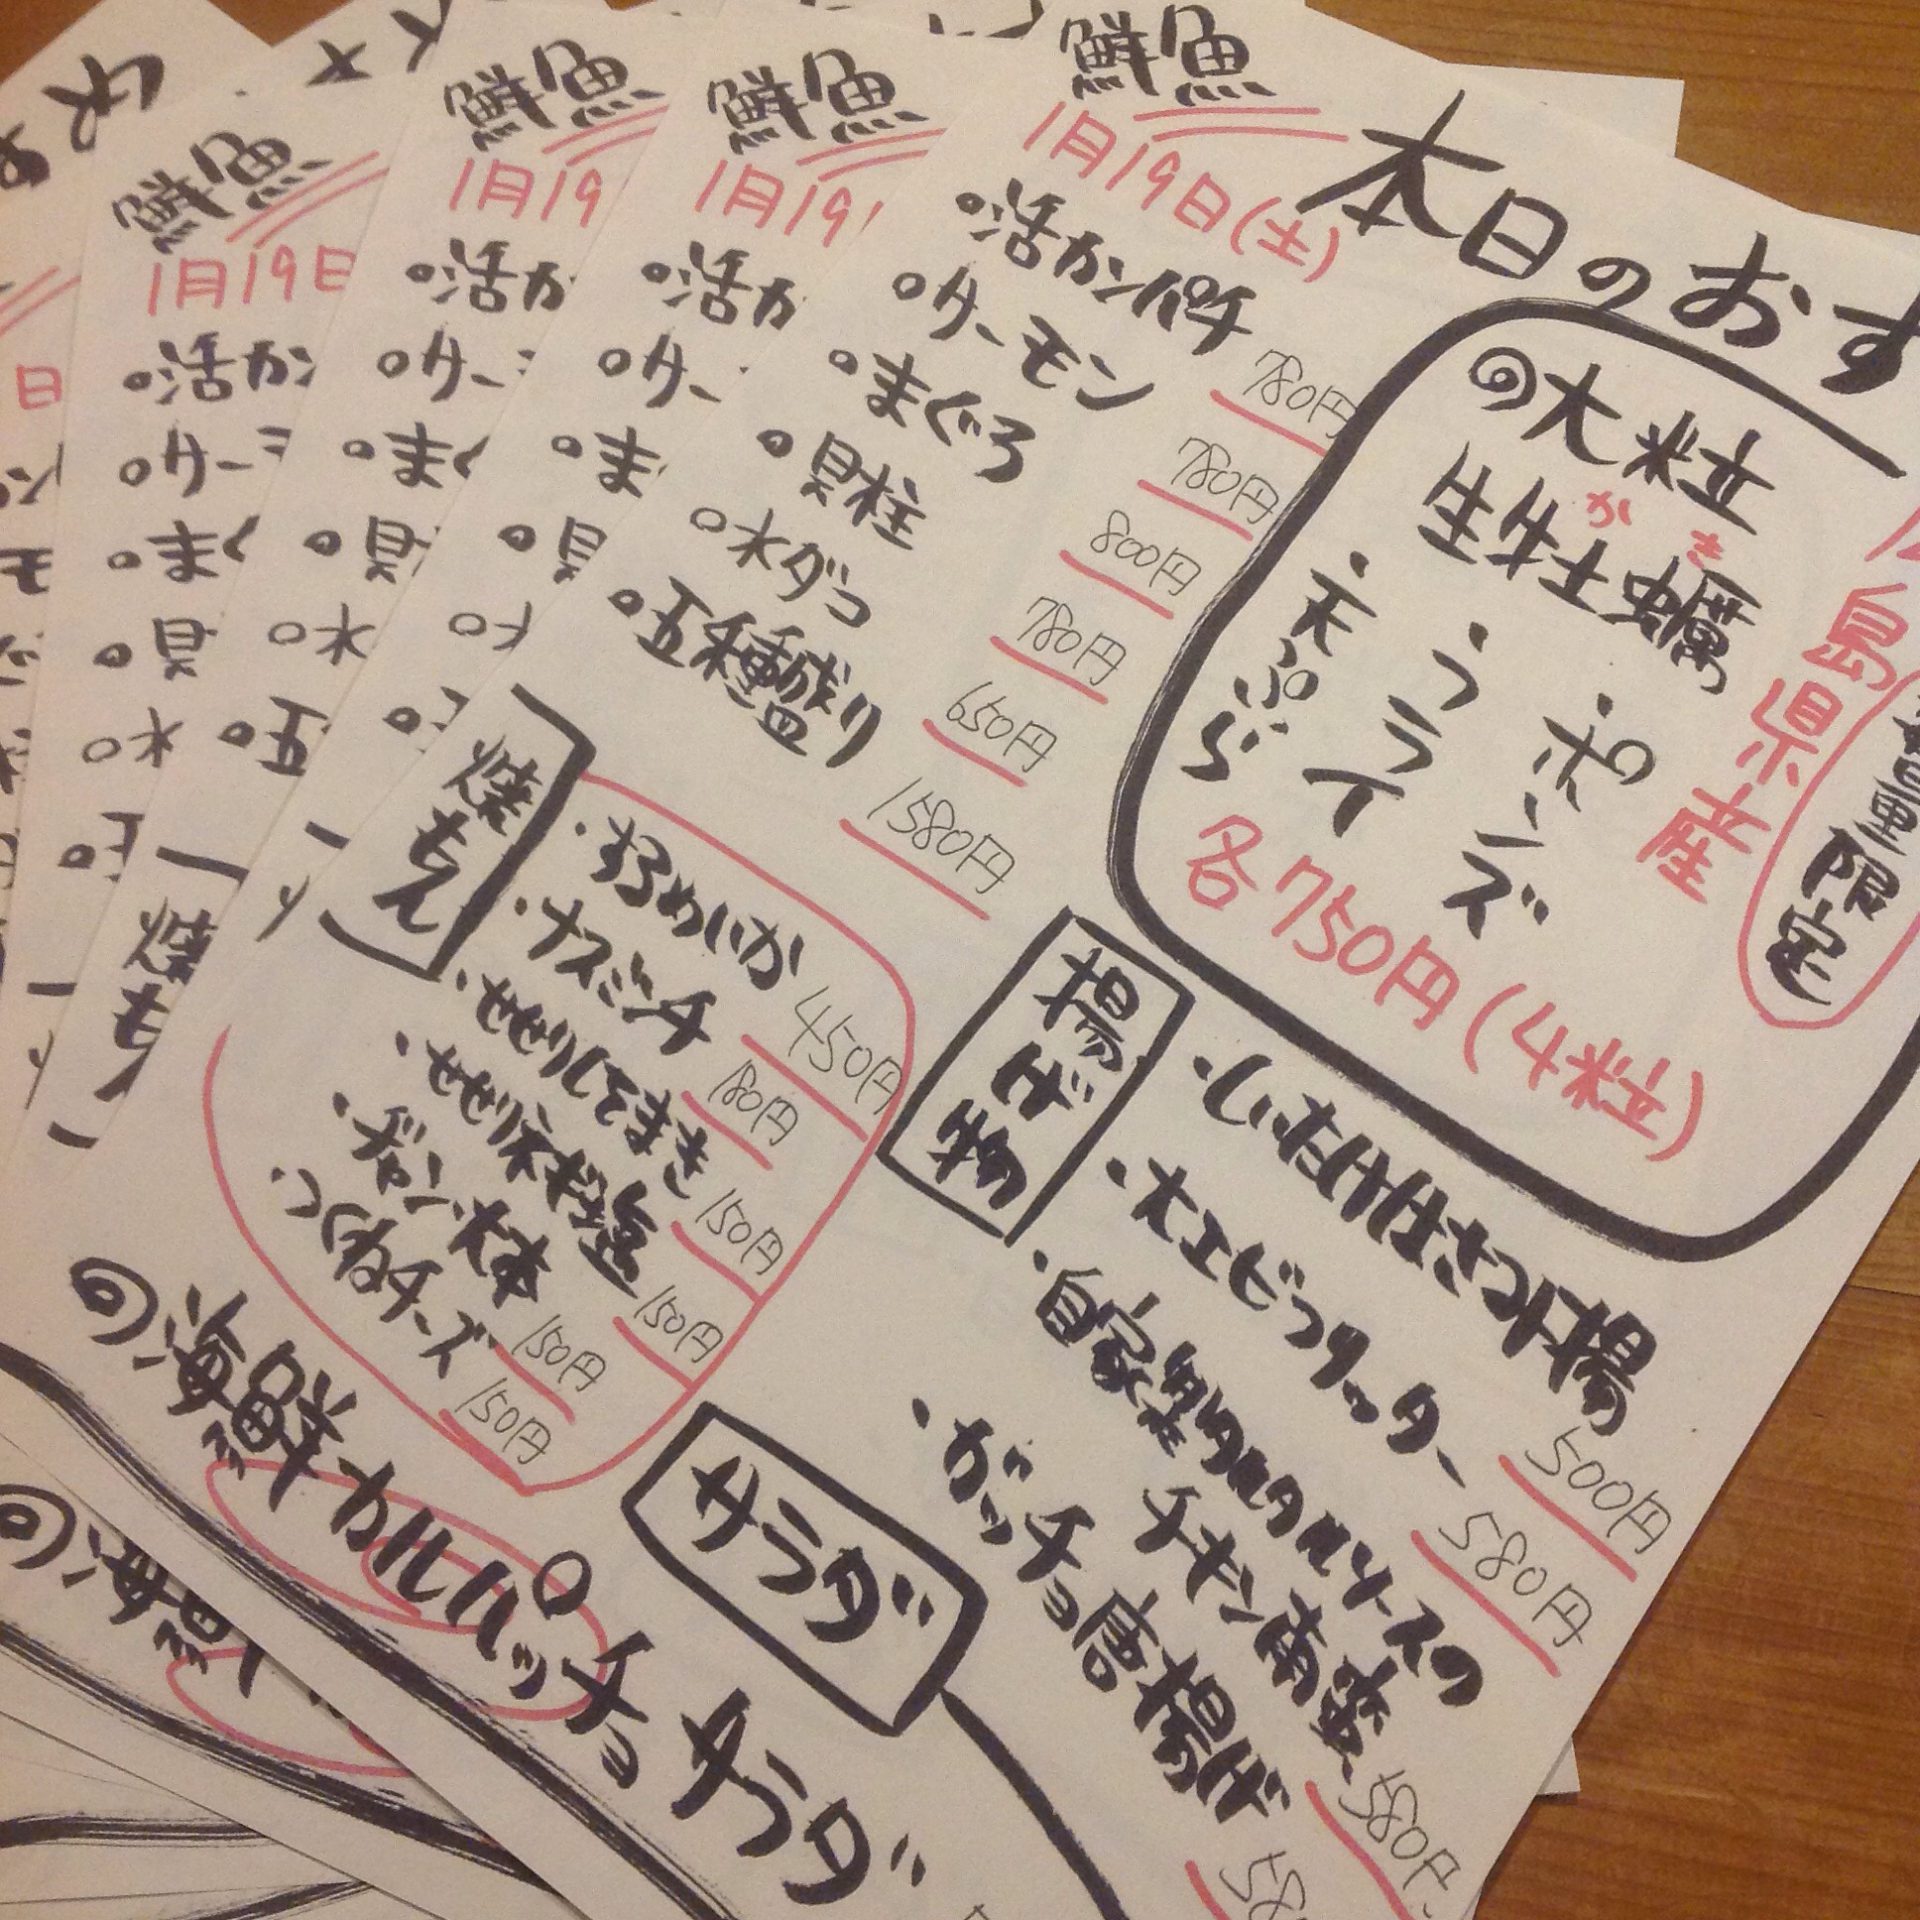 本日のおす
鮮魚
1月19日(土)
○活カンパチ 780円
○サーモン 780円
○まぐろ 800円
○貝柱 780円
○水ダコ 650円
○五種盛り 1580円
大粒
生牡蠣
かき
島県産
量限定
・ポンズ
・フライ
・天ぷら
各750円(4粒)
焼もん
・するめいか 450円
・ナスミンチ 180円
・せせりしそまき 150円
・せせりネギ塩 150円
・ギョーザ 150円
・つくねチーズ 150円
揚げ物
・しいたけはさみ揚 500円
・大エビフリッター 580円
・自家製タルタルソースの
チキン南蛮 580円
・ガッチョ唐揚げ 58
サラダ
海鮮カルパッチョサラダ
鮮魚
1月19
○活カ
○サー
○ま
○貝
鮮魚
1月19
○活カ
○サー
○まぐ
○貝
○水
○五
鮮魚
1月19日
○活カン
○サーモ
○まぐ
○貝
○水
焼も
日